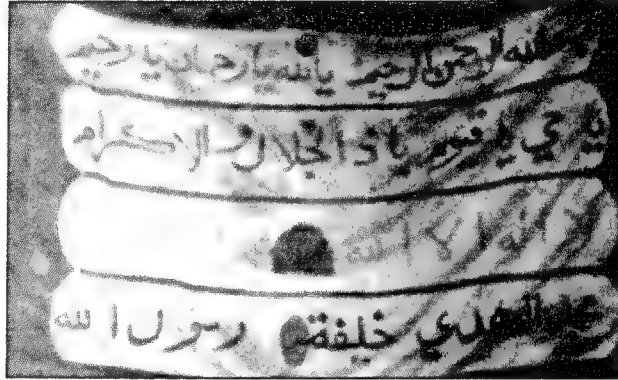 الله الرحمن الرحيم يالله يارحمن يارحيم
يا حي يا قيوم يا ذا الجلال والاكرام
لا اله الا الله
المهدي خليفة رسول الله